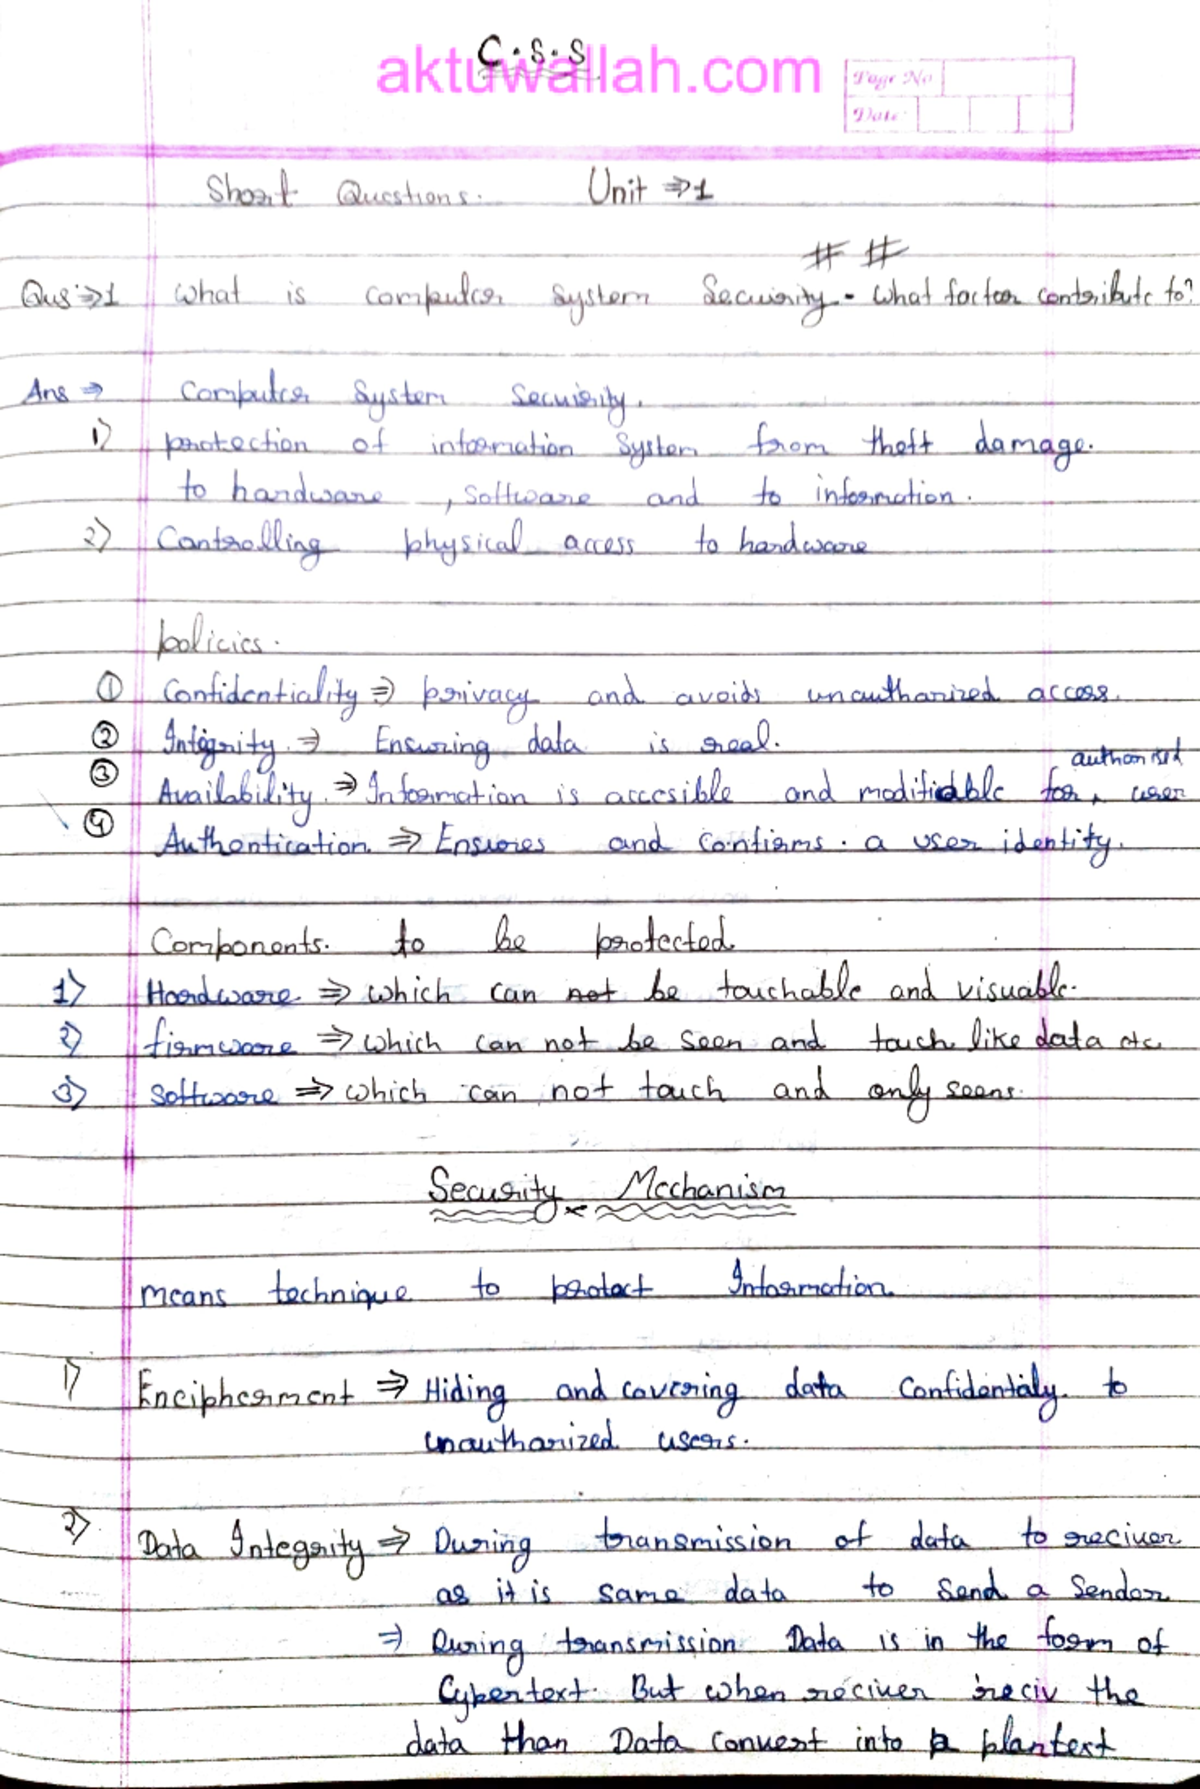 C.S.S
aktuwallah.com
Page No
Date
Short Questions. Unit ⇒ 1
# #
Qus ⇒ 1 What is computer system Security - what factor contribute to?
Ans ⇒ Computer System Security.
1) protection of information System from theft damage.
to hardware, software and to information.
2) Controlling physical access to hardware
policies.
① Confidentiality ⇒ privacy and avoids unauthorized access.
② Integrity ⇒ Ensuring data is real.
authorised
③ Availability ⇒ Information is accesible and modifiable for, user
④ Authentication ⇒ Ensures and Confirms. a user identity.
Components. to be protected
1) Hardware ⇒ which can not be touchable and visuable.
2) firmware ⇒ which can not be seen and touch like data etc
3) Software ⇒ which can not touch and only seens.
Security Mechanism
means technique to protect Information.
1) Encipherment ⇒ Hiding and covering data Confidentialy to
unautharized users.
2) Data Integrity ⇒ During transmission of data to reciver
as it is same data to send a Sender
⇒ During transmission Data is in the form of
Cybertext. But when reciver reciv the
data than Data convert into plantext